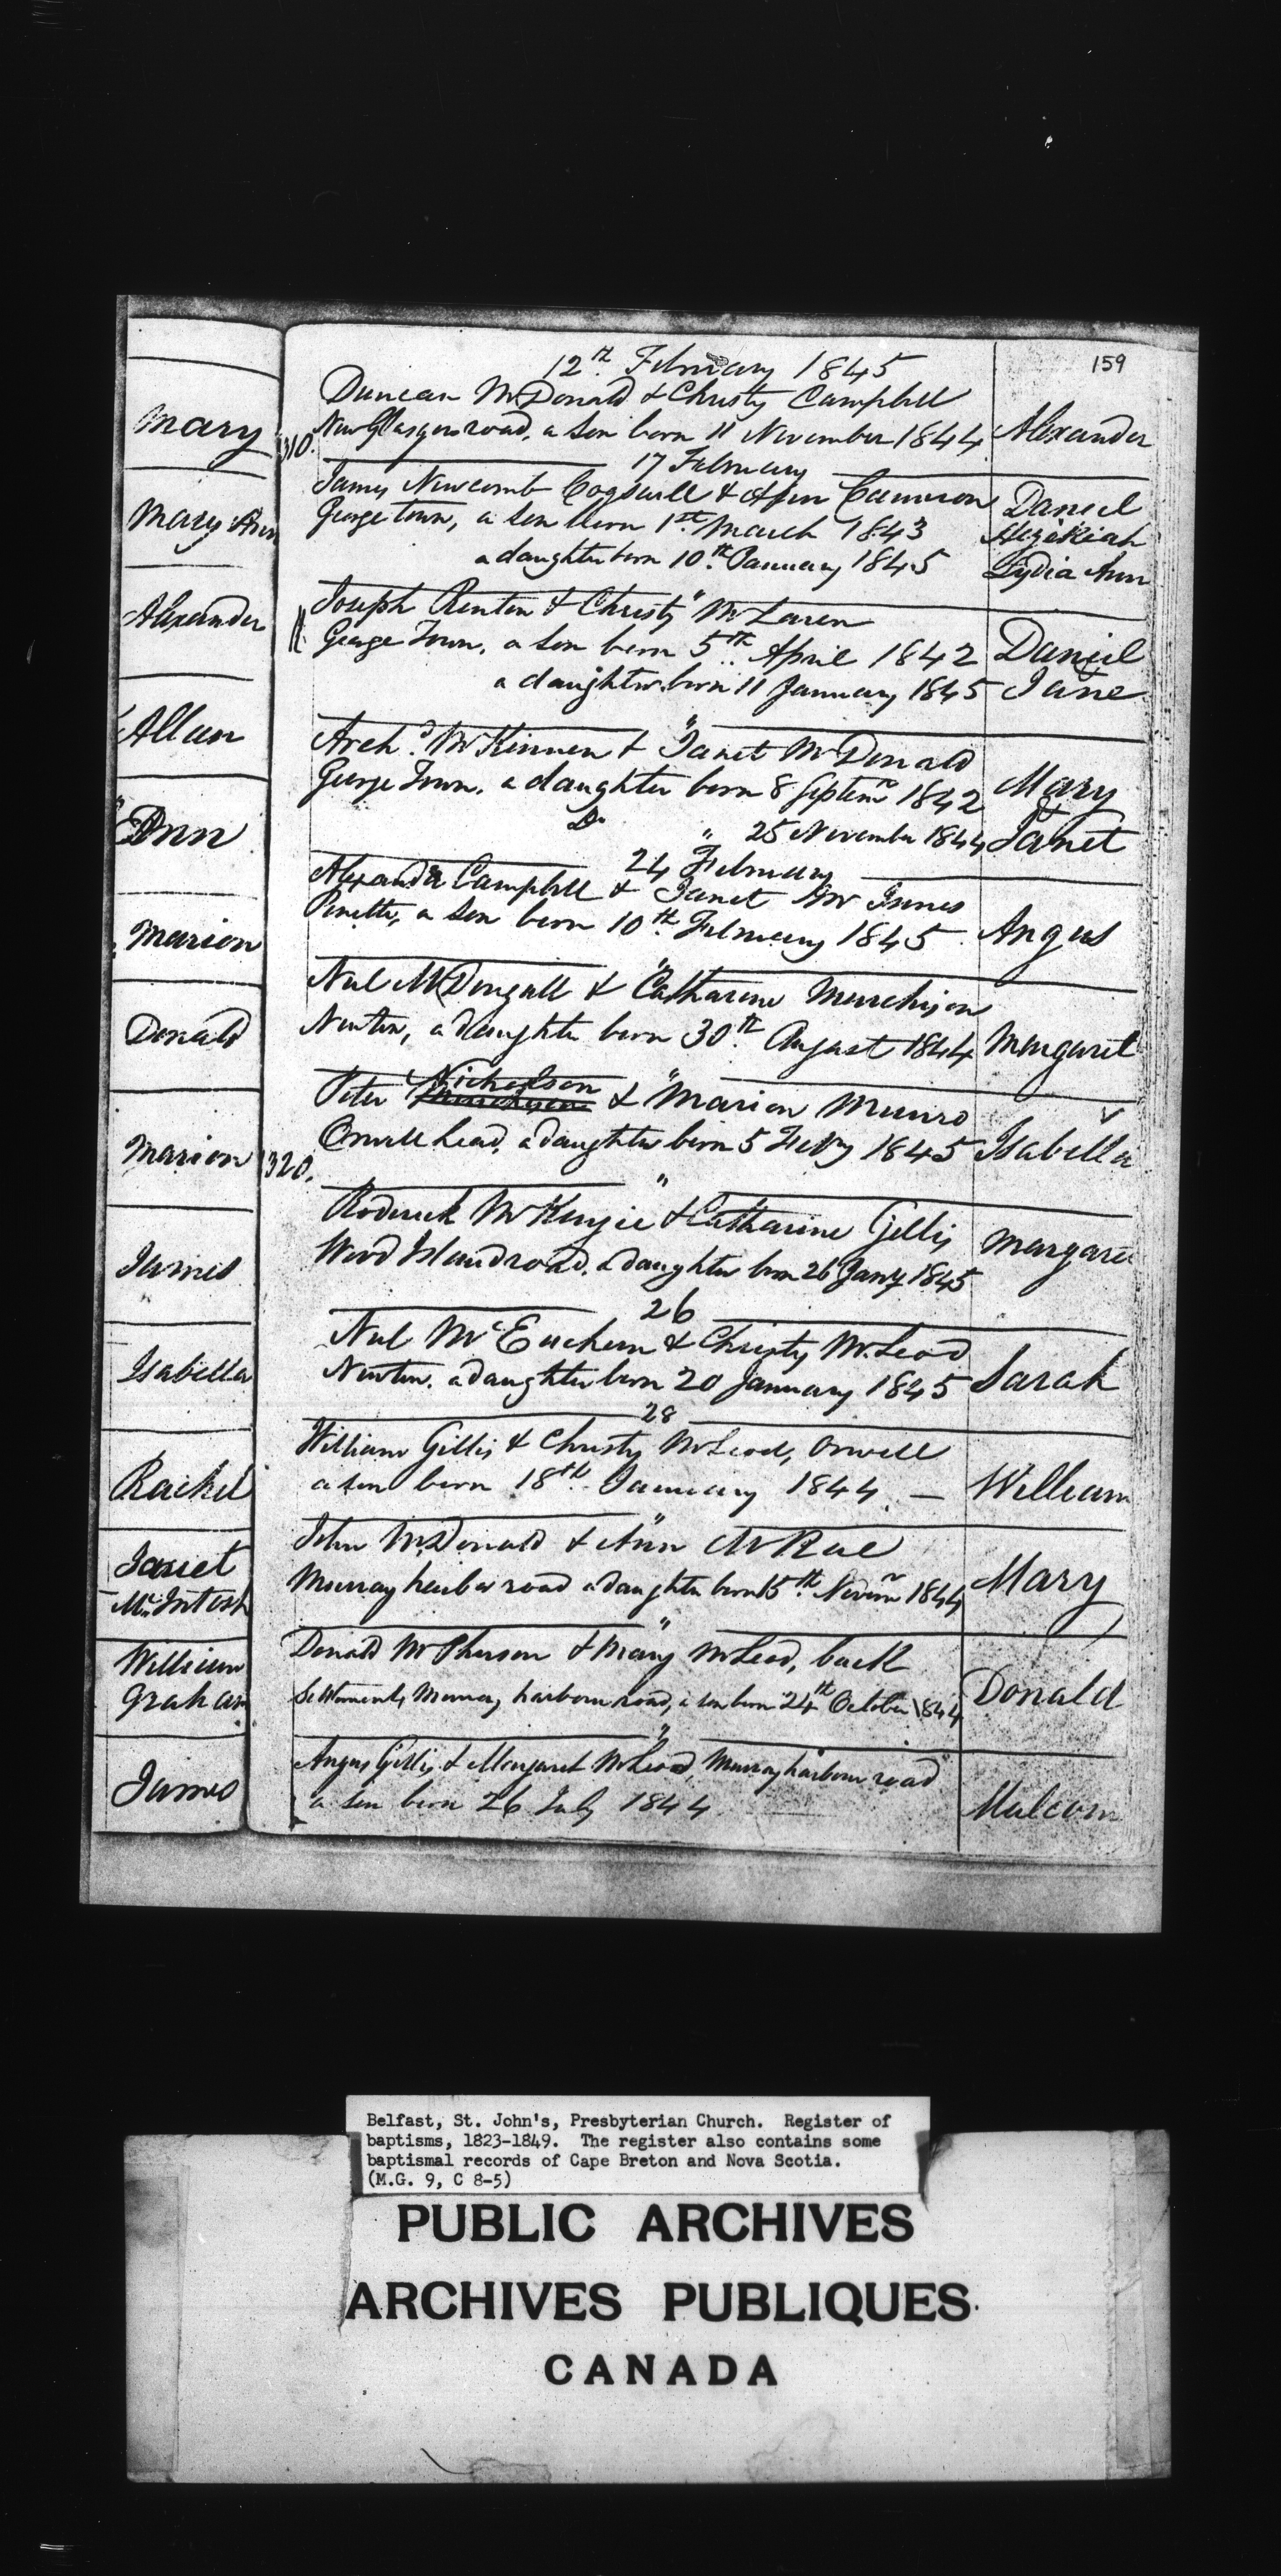 159
Mary
Mary Ann
Alexander
Allan
Ann
Marion
Donald
Marion
James
Isabella
Rachel
Janet
McIntosh
William
Graham
James
12th February 1845
Duncan McDonald & Christy Campbell
1310. New Glasgow road, a son born 11 November 1844 Alexander
17 February
James Newcomb Cogswell & Ann Cameron Daniel
George Town, a son born 1st March 1843 Hezekiah
a daughter born 10th January 1845 Lydia Ann
"
Joseph Renton & Christy McLaren
George Town, a son born 5th April 1842 Daniel
&
a daughter born 11 January 1845 Jane
"
Archd. McKinnen & Janet McDonald
George Town, a daughter born 8 Septemr 1842 Mary
&
Do " 25 November 1844 Janet
24 February
Alexander Campbell & Janet McInnes
Pinette, a son born 10th February 1845 Angus
"
Neil McDougall & Catharine Murchison
Newton, a daughter born 30th August 1844 Margaret
"
Nicholson
Peter Murchison & Marion Munro
1320. Orwell head, a daughter born 5 Feby 1845 Isabella
"
Roderick McKenzie & Catharine Gillis
Wood Island road, a daughter born 26 Jany 1845 Margaret
26
Neil McEachern & Christy McLeod
Newton, a daughter born 20 January 1845 Sarah
28
William Gillis & Christy McLeod, Orwell
a son born 18th January 1844 — William
"
John McDonald & Ann McRae
Murray harbor road a daughter born 15th Novemr 1844 Mary
"
Donald McPherson & Mary McLeod, back
Settlement, Murray harbour road, a son born 24th October 1844 Donald
"
Angus Gillis & Margaret McLeod, Murray harbour road
a son born 26 July 1844 Malcom
Belfast, St. John's, Presbyterian Church. Register of
baptisms, 1823-1849. The register also contains some
baptismal records of Cape Breton and Nova Scotia.
(M.G. 9, C 8-5)
PUBLIC ARCHIVES
ARCHIVES PUBLIQUES
CANADA